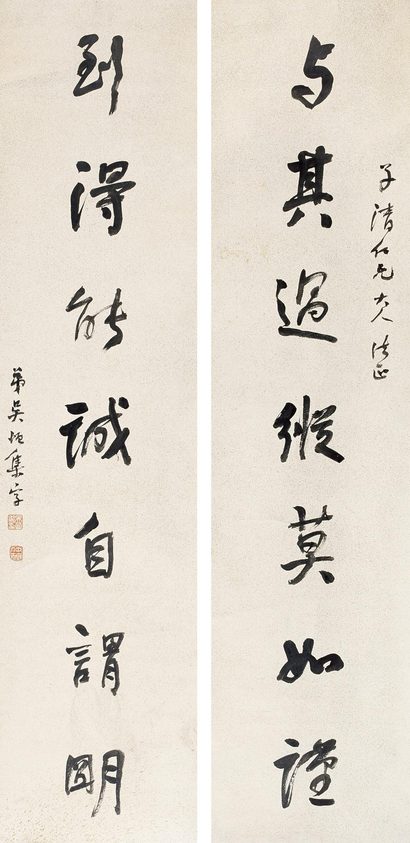 子清仁兄大人法正
与其過縱莫如謹
到得能誠自謂明
弟吳恒集字